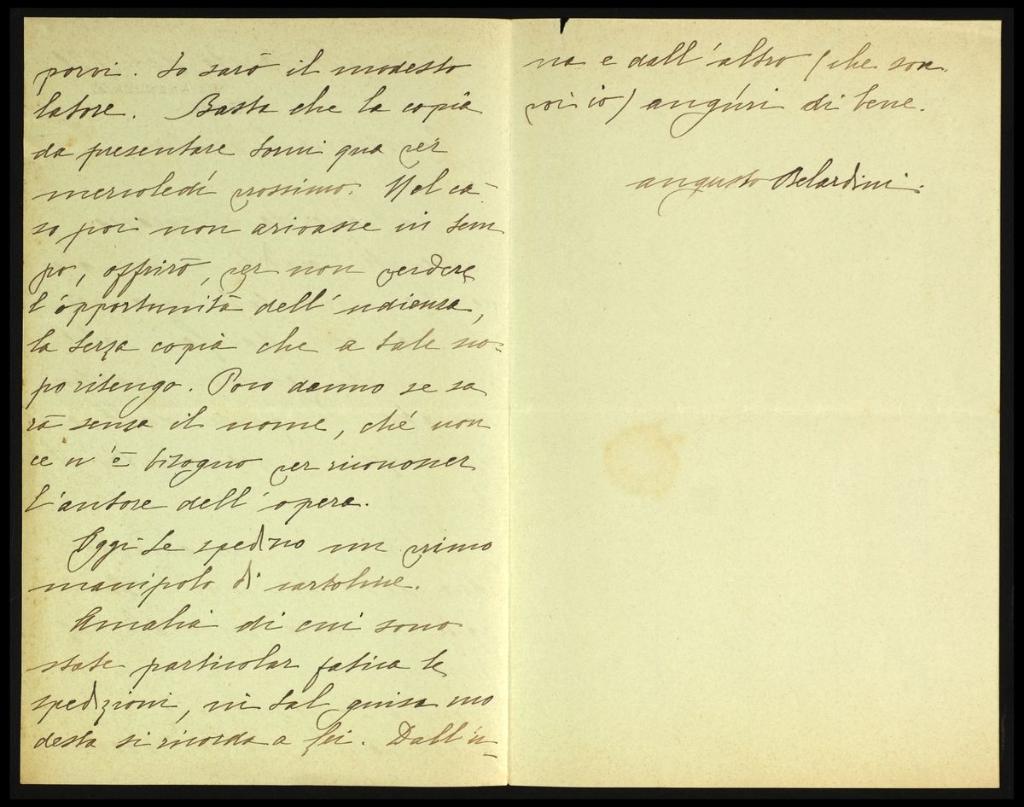 porvi. Io sarò il modesto
latore. Basta che la copia
da presentare torni qua per
mercoledì prossimo. Nel ca-
so poi non arivasse in tem
po, offrirò, per non perdere
l'opportunità dell'udienza,
la terza copia che a tale sco-
po ritengo. Poco danno se sa
rà senza il nome, ché non
ce n'è bisogno per riconoscer
l'autore dell'opera.
Oggi Le spedisco un primo
manipolo di cartoline.
Amalia di cui sono
state particolar fatica le
spedizioni, in tal guisa mo
desta si ricorda a Lei. Dall'u-
na e dall'altro (che son
poi io) augúri di bene.
Augusto Belardini.